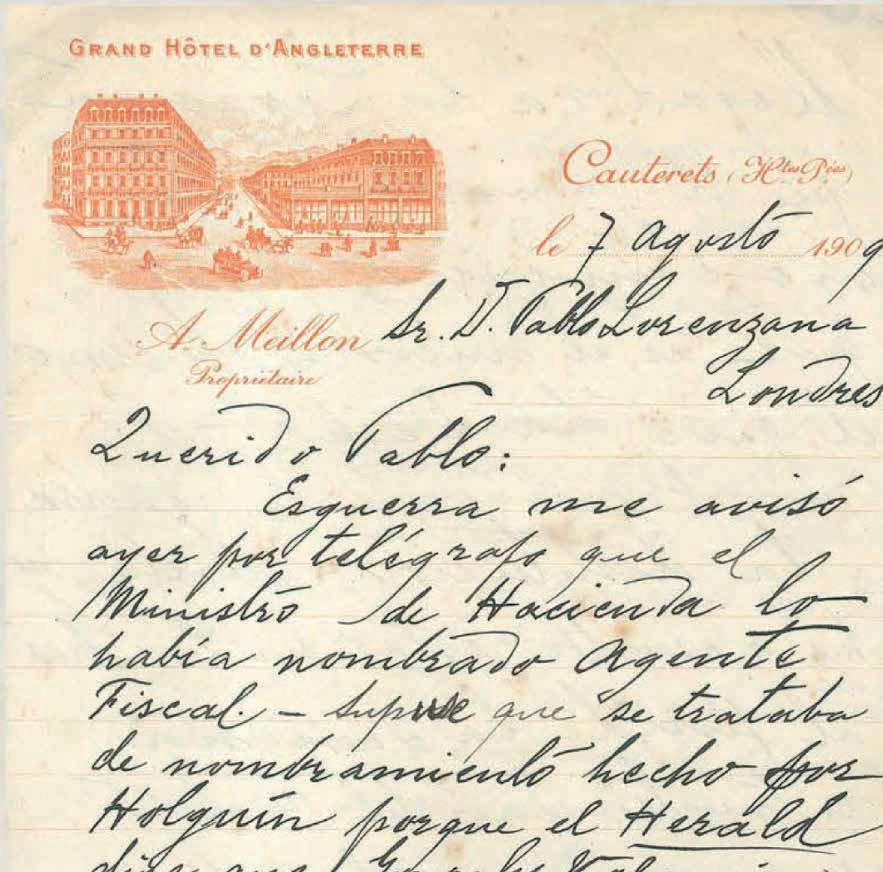 GRAND HÔTEL D'ANGLETERRE
Cauterets (Htes Pées)
le 7 Agosto 1909
A. Meillon
Propriétaire
Sr. D. Pablo Lorenzana
Londres
Querido Pablo:
Esguerra me avisó
ayer por telégrafo que el
Ministro de Hacienda lo
había nombrado Agente
Fiscal. - Supuse que se trataba
de nombramiento hecho por
Holguín porque el Herald
dice que